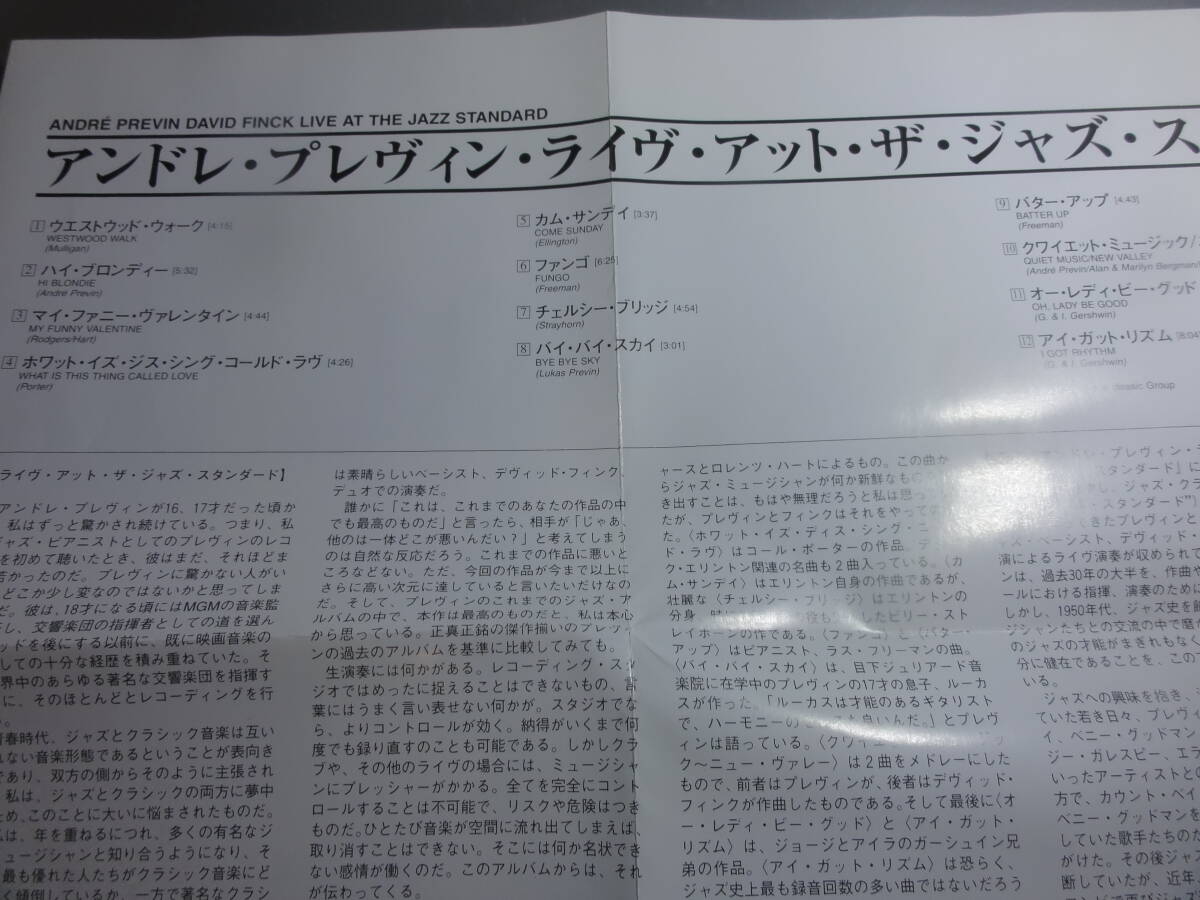 ANDRÉ PREVIN DAVID FINCK LIVE AT THE JAZZ STANDARD
アンドレ・プレヴィン・ライヴ・アット・ザ・ジャズ・ス
1 ウエストウッド・ウォーク [4:15]
WESTWOOD WALK
(Mulligan)
2 ハイ・ブロンディー [5:32]
HI BLONDIE
(André Previn)
3 マイ・ファニー・ヴァレンタイン [4:44]
MY FUNNY VALENTINE
(Rodgers/Hart)
4 ホワット・イズ・ジス・シング・コールド・ラヴ [4:26]
WHAT IS THIS THING CALLED LOVE
(Porter)
5 カム・サンデイ [3:37]
COME SUNDAY
(Ellington)
6 ファンゴ [6:25]
FUNGO
(Freeman)
7 チェルシー・ブリッジ [4:54]
(Strayhorn)
8 バイ・バイ・スカイ [3:01]
BYE BYE SKY
(Lukas Previn)
9 バター・アップ [4:43]
BATTER UP
(Freeman)
10 クワイエット・ミュージック/
QUIET MUSIC/NEW VALLEY
(André Previn/Alan & Marilyn Bergman/
11 オー・レディ・ビー・グッド
OH, LADY BE GOOD
(G. & I. Gershwin)
12 アイ・ガット・リズム [8:04]
I GOT RHYTHM
(G. & I. Gershwin)
Classic Group
ライヴ・アット・ザ・ジャズ・スタンダード】
アンドレ・プレヴィンが16、17才だった頃か
私はずっと驚かされ続けている。つまり、私
ジャズ・ピアニストとしてのプレヴィンのレコ
を初めて聴いたとき、彼はまだ、それほどま
若かったのだ。プレヴィンに驚かない人がい
どこか少し変なのではないかと思ってしま
だ。彼は、18才になる頃にはMGMの音楽監
し、交響楽団の指揮者としての道を選ん
ッドを後にする以前に、既に映画音楽の
しての十分な経歴を積み重ねていた。そ
界中のあらゆる著名な交響楽団を指揮す
に、そのほとんどとレコーディングを行
。
青春時代、ジャズとクラシック音楽は互い
れない音楽形態であるということが表向き
であり、双方の側からそのように主張され
私は、ジャズとクラシックの両方に夢中
ため、このことに大いに悩まされたものだ。
私は、年を重ねるにつれ、多くの有名なジ
ュージシャンと知り合うようになり、そ
最も優れた人たちがクラシック音楽にど
く傾倒しているか、一方で著名なクラシ
は素晴らしいベーシスト、デヴィッド・フィンク、
デュオでの演奏だ。
誰かに「これは、これまでのあなたの作品の中
でも最高のものだ」と言ったら、相手が「じゃあ、
他のは一体どこが悪いんだい？」と考えてしまう
のは自然な反応だろう。これまでの作品に悪いと
ころなどない。ただ、今回の作品が今まで以上に
さらに高い次元に達していると言いたいだけなの
だ。そして、プレヴィンのこれまでのジャズ・ア
ルバムの中で、本作は最高のものだと、私は本心
から思っている。正真正銘の傑作揃いのプレヴィ
ンの過去のアルバムを基準に比較してみても。
生演奏には何かがある。レコーディング・スタ
ジオではめったに捉えることはできないもの、言
葉にはうまく言い表せない何かが。スタジオでな
ら、よりコントロールが効く。納得がいくまで何
度でも録り直すのことも可能である。しかしクラ
ブや、その他のライヴの場合には、ミュージシャ
ンにプレッシャーがかかる。全てを完全にコント
ロールすることは不可能で、リスクや危険はつき
ものだ。ひとたび音楽が空間に流れ出てしまえば、
取り消すことはできない。そこには何か名状でき
ない感情が働くのだ。このアルバムからは、それ
が伝わってくる。
ャースとロレンツ・ハートによるもの。この曲か
らジャズ・ミュージシャンが何か新鮮なもの
き出すことは、もはや無理だろうと私は思っ
たが、プレヴィンとフィンクはそれをやっての
た。〈ホワット・イズ・ディス・シング・
ド・ラヴ〉はコール・ポーターの作品。デ
ク・エリントン関連の名曲も2曲入っている。〈カ
ム・サンデイ〉はエリントン自身の作曲であるが、
壮麗な〈チェルシー・ブリッジ〉はエリントンの
分身、時に したビリー・スト
レイホーンの作である。〈ファンゴ〉と〈バター・
アップ〉はピアニスト、ラス・フリーマンの曲。
〈バイ・バイ・スカイ〉は、目下ジュリアード音
楽院に在学中のプレヴィンの17才の息子、ルーカ
スが作った。「ルーカスは才能のあるギタリスト
で、ハーモニーの も良いんだ。」とプレヴ
ィンは語っている。〈クワイエ
ク〜ニュー・ヴァレー〉は2曲をメドレーにした
もので、前者はプレヴィンが、後者はデヴィッド・
フィンクが作曲したものである。そして最後に〈オ
ー・レディ・ビー・グッド〉と〈アイ・ガット・
リズム〉は、ジョージとアイラのガーシュイン兄
弟の作品。〈アイ・ガット・リズム〉は恐らく、
ジャズ史上最も録音回数の多い曲ではないだろう
アンドレ・プレヴィン・
スタンダード』に
し、ジャズ・クラ
スタンダード”
できたプレヴィンと
ベーシスト、デヴィッド・
演によるライヴ演奏が収められて
ンは、過去30年の大半を、作曲や
ールにおける指揮、演奏のために
しかし、1950年代、ジャズ史を
ジシャンたちとの交流の中で磨か
のジャズの才能がまぎれもなく
分に健在であることを、この
いる。
ジャズへの興味を抱き、
ていた若き日々、プレヴィ
イ、ベニー・グッドマン
ジー・ガレスピー、エラ
いったアーティストとの
方で、カウント・ベイ
ベニー・グッドマンを
していた歌手たちのた
がけた。その後ジャズ
断していたが、近年、